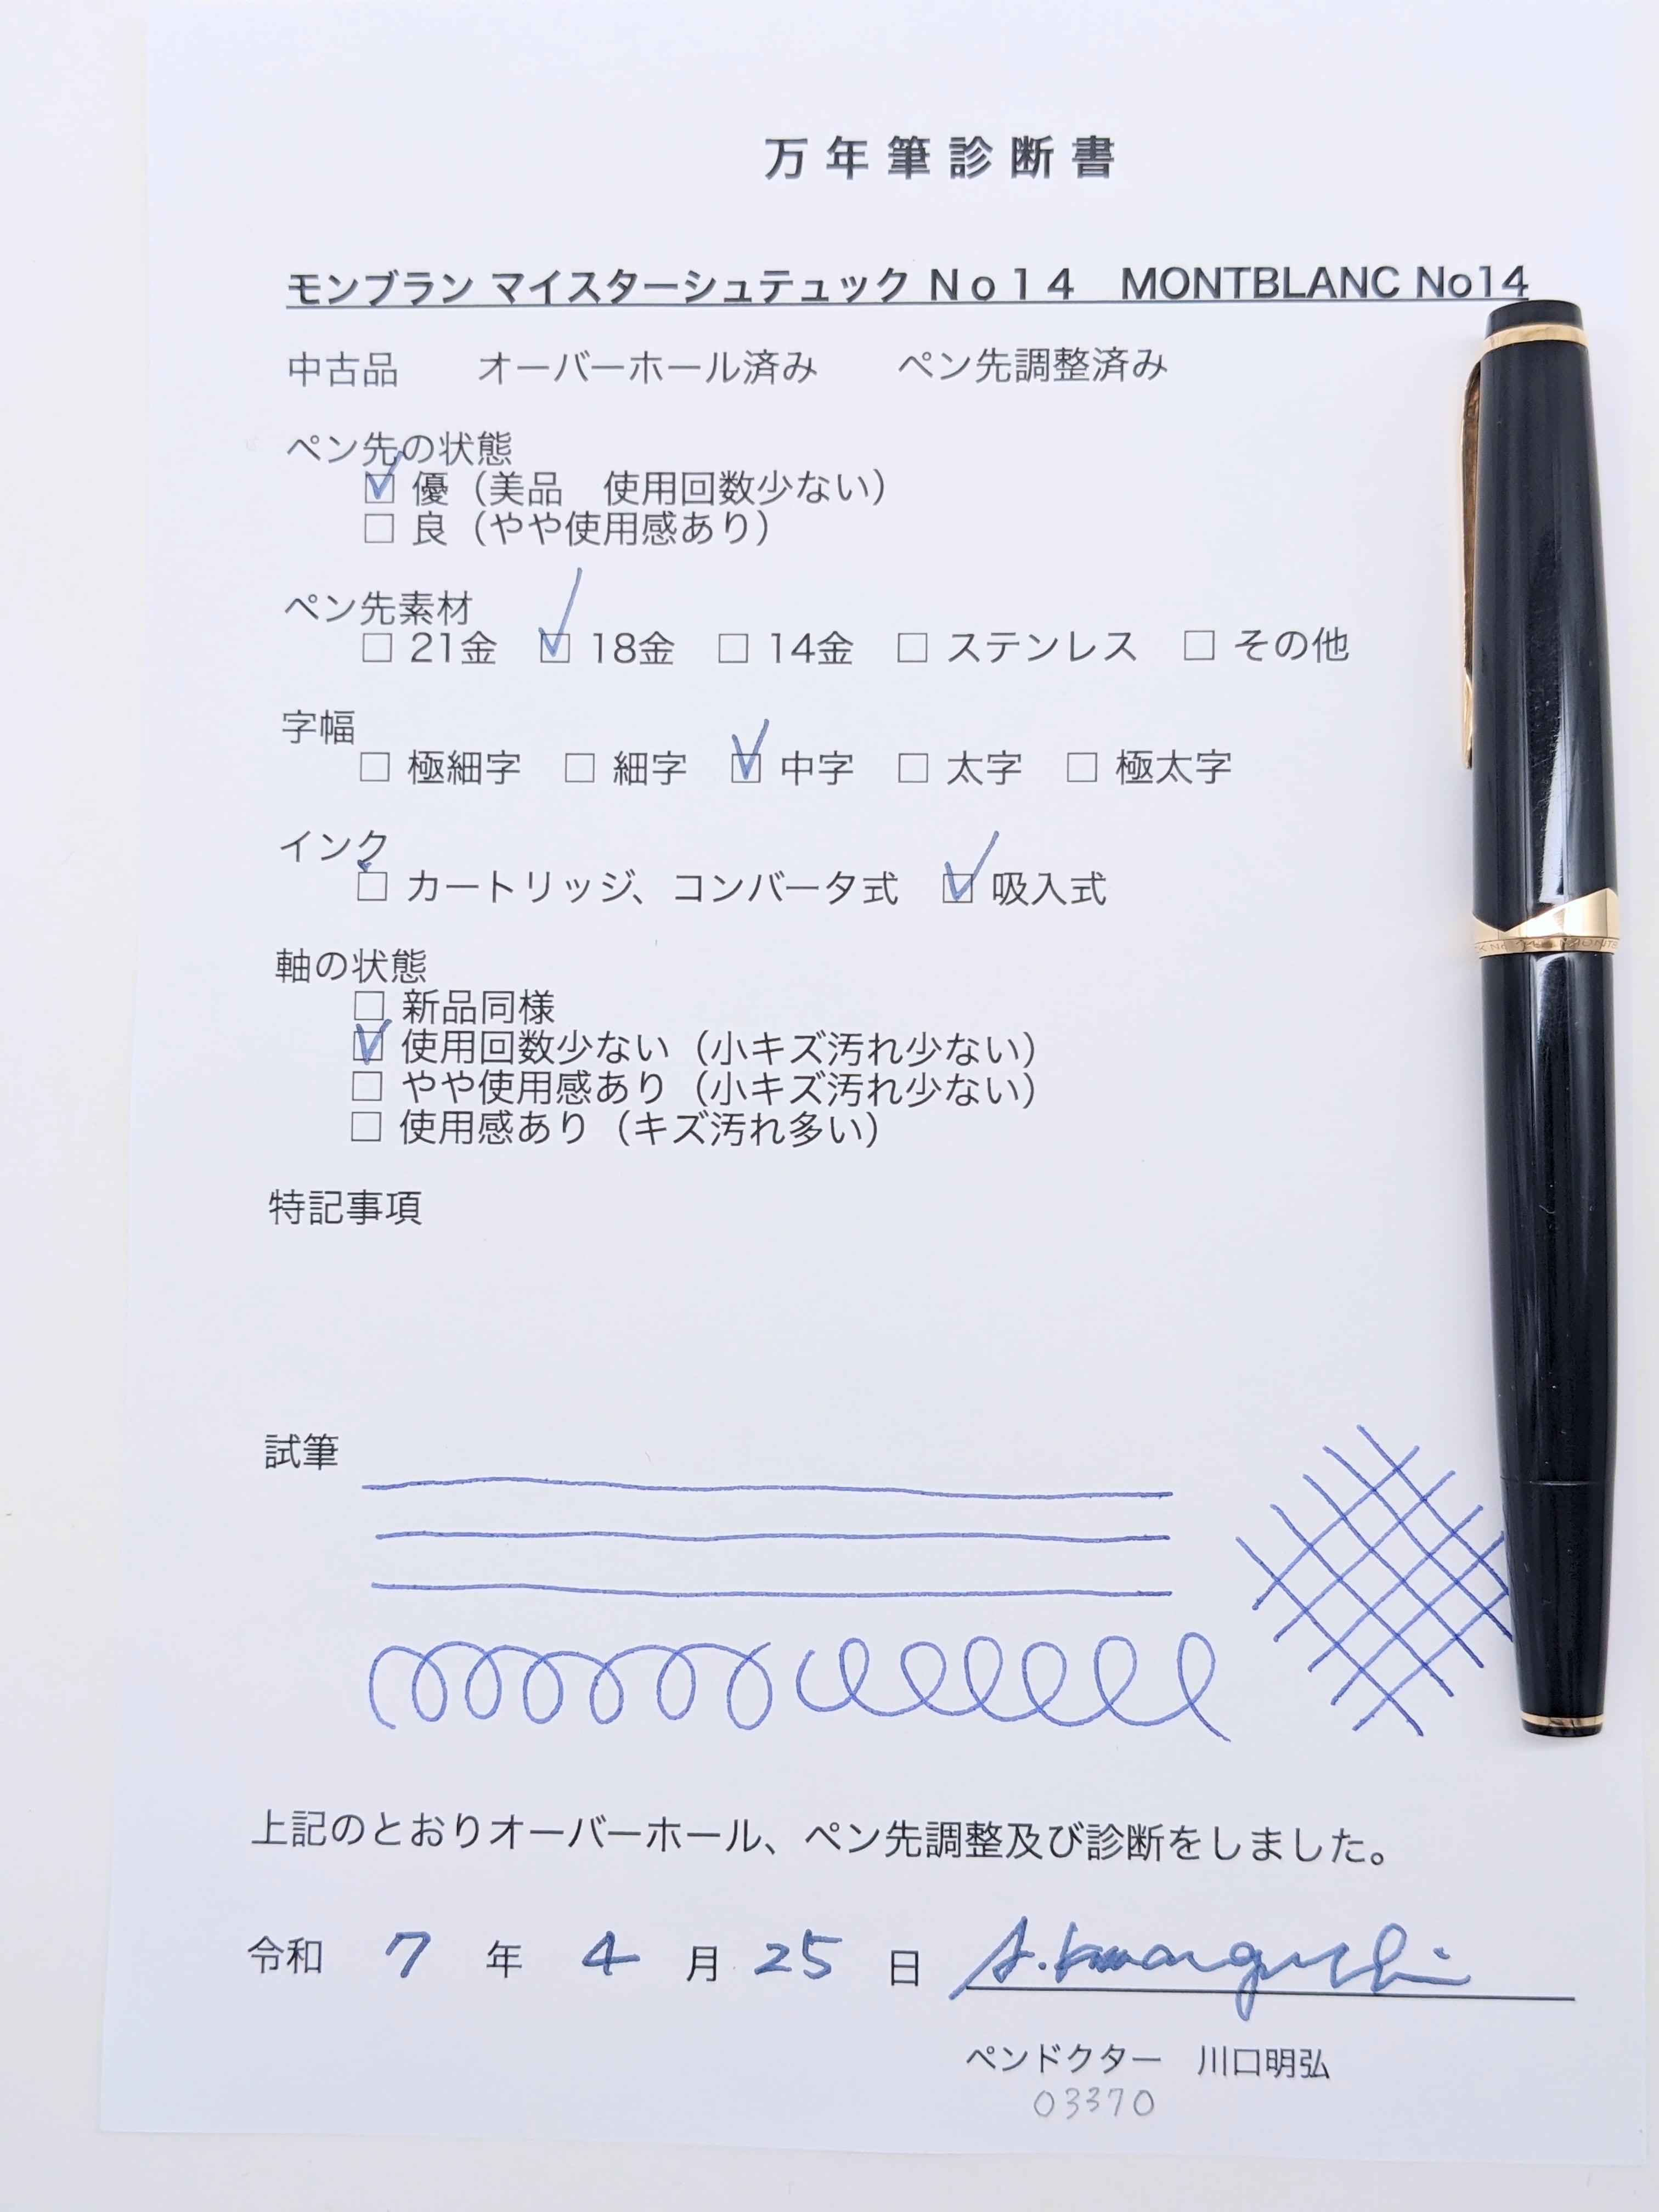 万年筆診断書
モンブラン マイスターシュテュック Ｎｏ１４　MONTBLANC No14
中古品　　オーバーホール済み　　ペン先調整済み
ペン先の状態
☑ 優（美品　使用回数少ない）
□ 良（やや使用感あり）
ペン先素材
□ 21金　☑ 18金　□ 14金　□ ステンレス　□ その他
字幅
□ 極細字　□ 細字　☑ 中字　□ 太字　□ 極太字
インク
□ カートリッジ、コンバータ式　☑ 吸入式
軸の状態
□ 新品同様
☑ 使用回数少ない（小キズ汚れ少ない）
□ やや使用感あり（小キズ汚れ少ない）
□ 使用感あり（キズ汚れ多い）
特記事項
試筆
上記のとおりオーバーホール、ペン先調整及び診断をしました。
令和 7 年 4 月 25 日 A.Kawaguchi
ペンドクター　川口明弘
03370